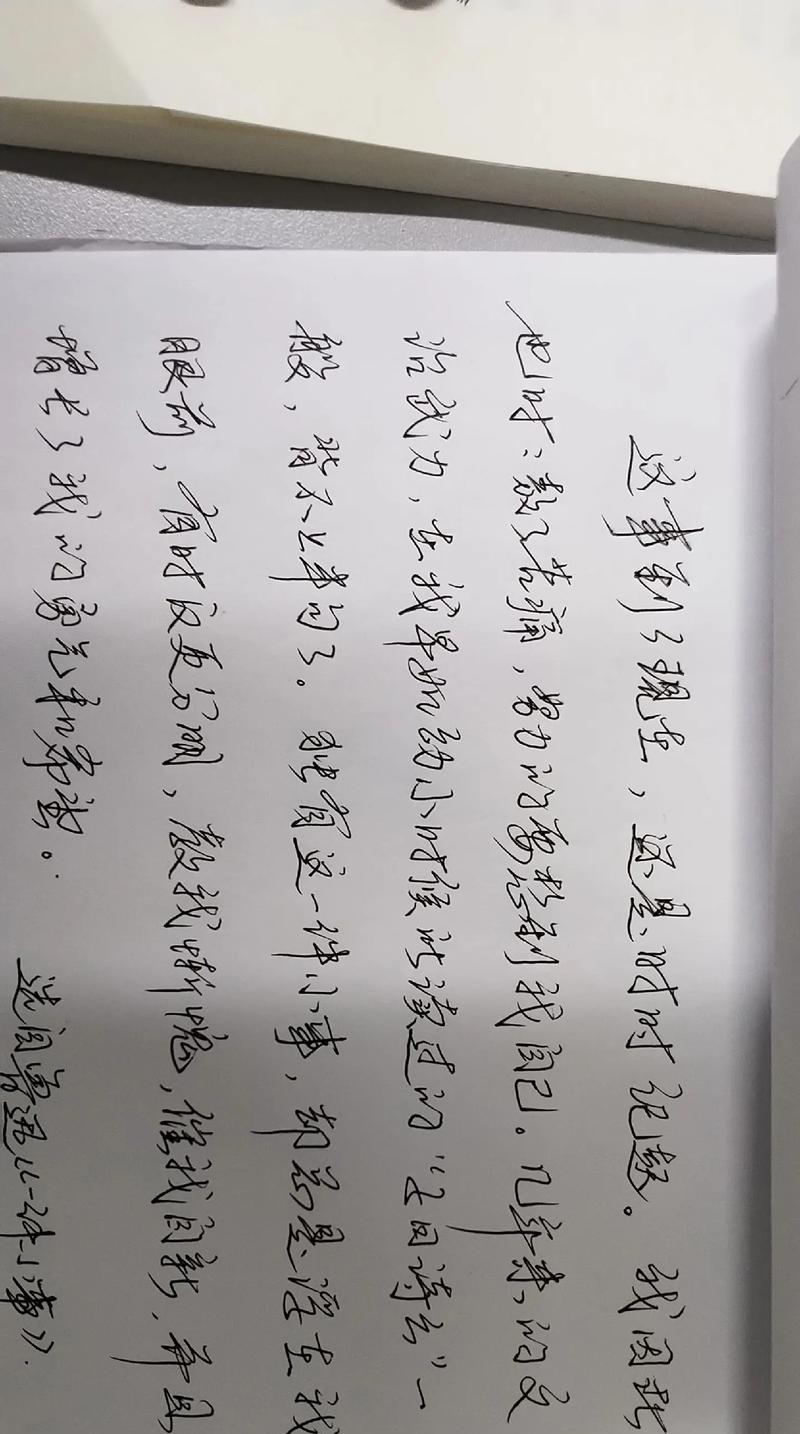 这事到了现在，还是时时记起。我因此
也时:教了苦痛，努力的要想到我自己。几年来的文
治武力，在我早如幼小时候所读过的“子曰诗云”一
般，背不上半句了。独有这一件小事，却总是浮在我
眼前，有时反更分明，教我惭愧，催我自新，并且
增长了我的勇气和希望。
选自鲁迅《一件小事》.